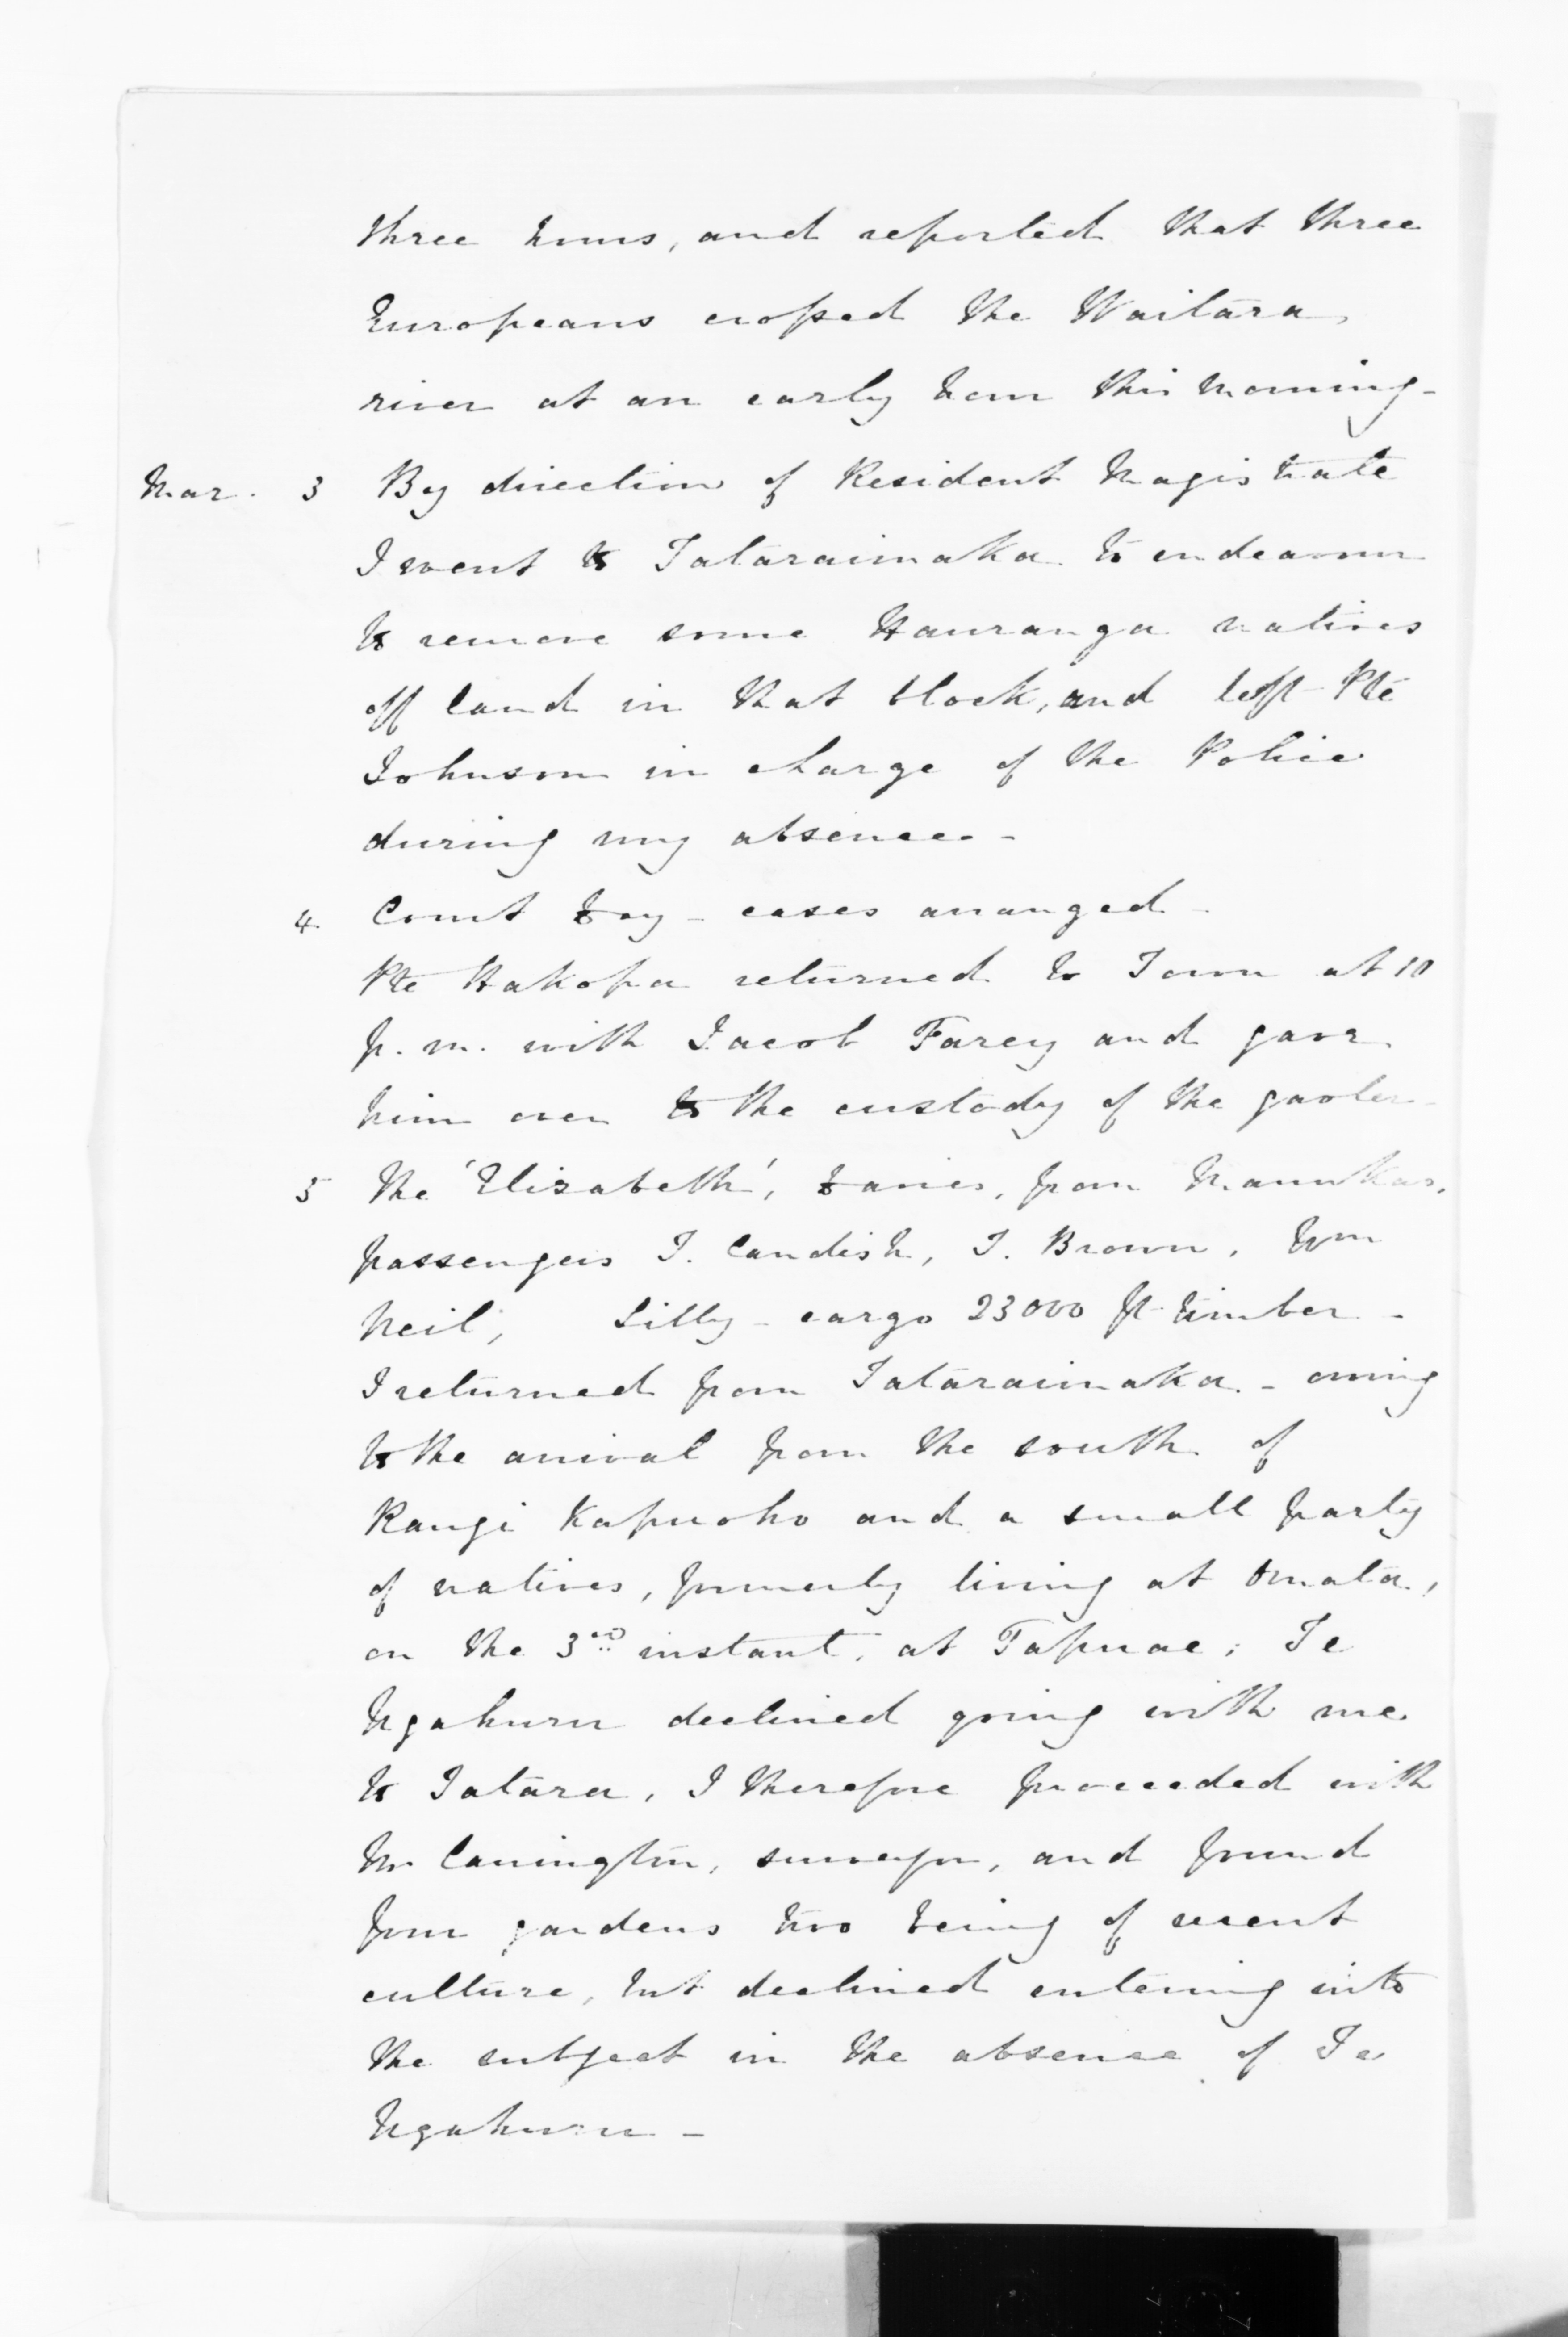 three hours, and reported that three
Europeans crossed the Waitara
river at an early hour this morning -
Mar. 3 By direction of Resident Magistrate
I went to Tataraimaka to endeavour
to remove some Hauranga natives
off land in that block, and left Pte
Johnson in charge of the Police
during my absence -
4 Court Day - cases arranged -
Pte Hakopa returned to Town at 10
p.m. with Jacob Farey and gave
him over to the custody of the gaoler -
5 The 'Elizabeth', Davies, from Manukau,
passengers J. Candish, J. Brown, Wm
Neil, Lilly - cargo 23000 ft timber -
I returned from Tataraimaka - owing
to the arrival from the south of
Rangi Kapuoho and a small party
of natives, formerly living at Omata,
on the 3rd instant, at Tapuae; Te
Ngahuru declined going with me
to Tatara, I therefore proceeded with
Mr Carrington, surveyor, and found
four gardens two being of recent
culture, but declined entering into
the subject in the absence of Te
Ngahuru -